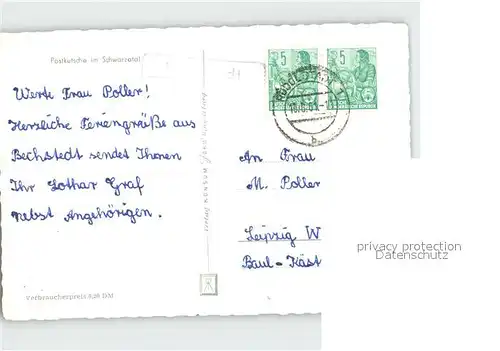 Postkutsche im Schwarzatal
Werte Frau Poller!
Herzliche Feriengrüße aus
Bechstedt sendet Ihnen
Ihr Lothar Graf
nebst Angehörigen.
Verbraucherpreis 0,20 DM
5
5
b
An Frau
M. Poller
Leipzig W
Baul-Käst
privacy protection
Datenschutz